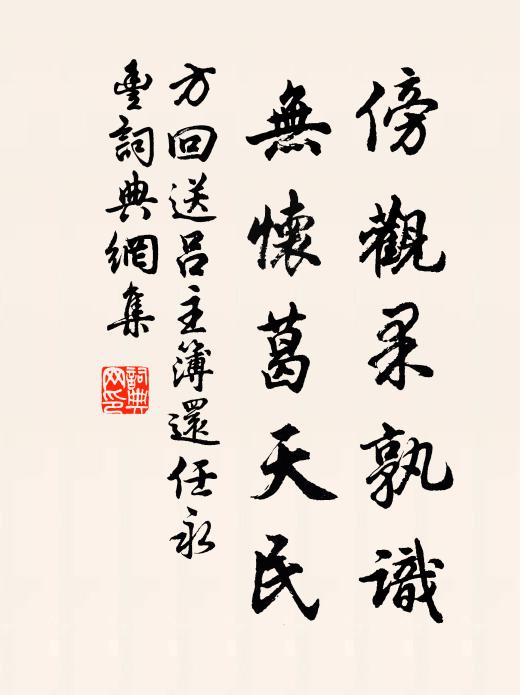 傍觀果孰識
無懷葛天民
方回送呂主簿還任永
豐詞典網集
詞典網印